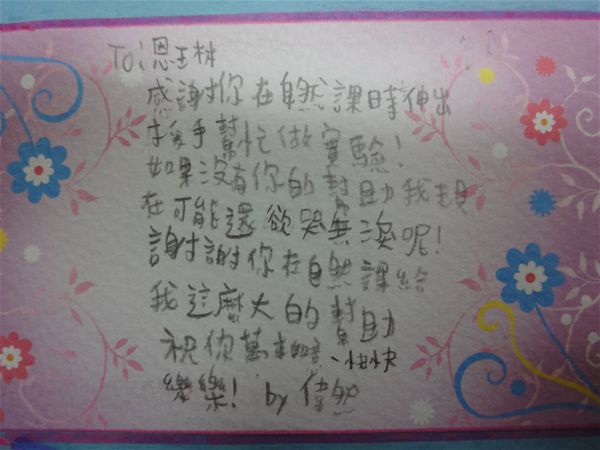 To:恩琳
感謝你在自然課時伸出
援手幫忙做實驗!
如果沒有你的幫助我現
在可能還欲哭無淚呢!
謝謝你在自然課給
我這麼大的幫助
祝你萬事如意、快快
樂樂! by 偉然